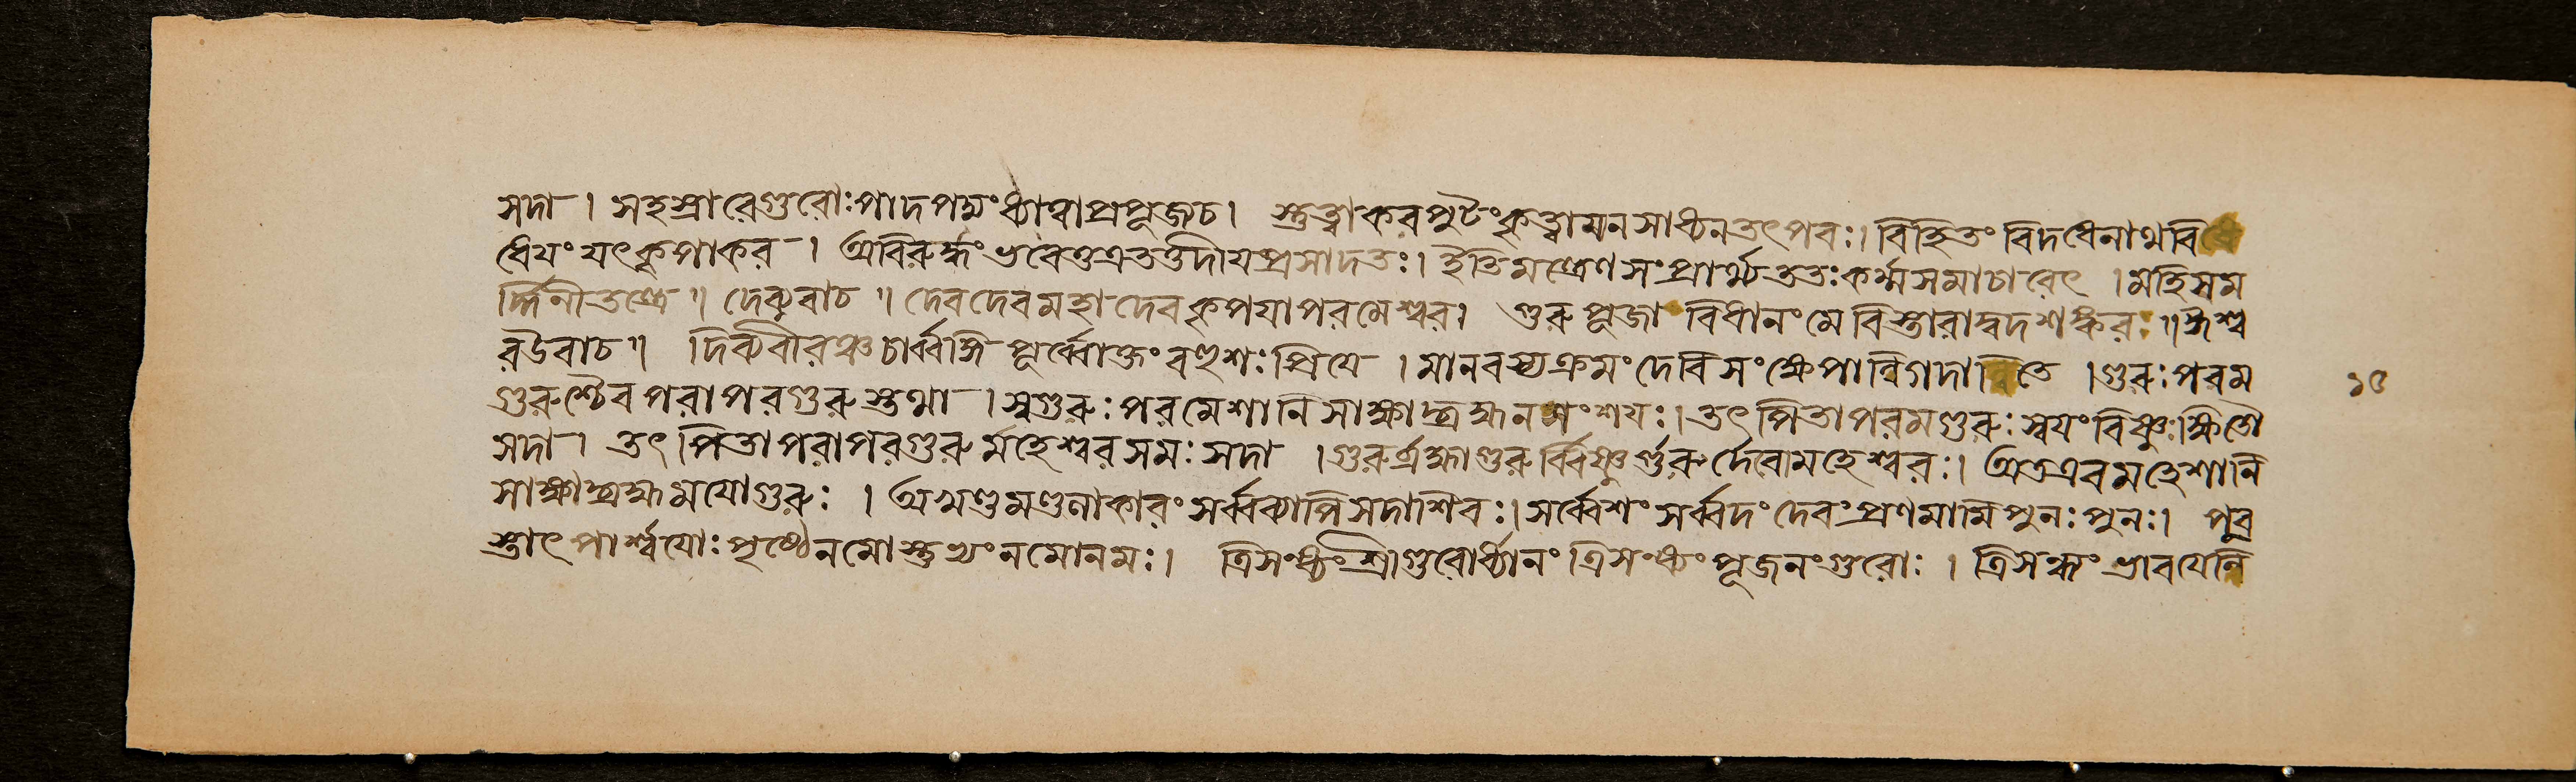 সদা। সহস্রারে গুরোঃ পাদপদ্মং ধ্যাত্বা প্রপূজ্য চ। স্তুত্বা করপুটং কৃত্বা মনসা ধ্যানতৎপরঃ। বিহিতং বিদধেনাথ বি
ধেয়ং যৎ কৃপাকর। অবিরুদ্ধং ভবেত্তু এতত্ত্বদীয়প্রসাদতঃ। ইতি মন্ত্রেণ সংপ্রার্থ্য ততঃ কর্ম্ম সমাচরেৎ। মহিষম
র্দ্দিনীতন্ত্রে॥ দেব্যুবাচ॥ দেবদেব মহাদেব কৃপয়া পরমেশ্বর। গুরুপূজাবিধানং মে বিস্তারাদ্বদ শঙ্কর॥ ঈশ্ব
র উবাচ॥ দিব্যবীরঞ্চ চার্ব্বঙ্গি পূর্ব্বোক্তং বহুশঃ প্রিয়ে। মানবস্য ক্রমং দেবি সংক্ষেপান্নিগদামি তে। গুরুঃ পরম
গুরুশ্চৈব পরাপরগুরুস্তথা। স্বগুরুঃ পরমেশানি সাক্ষাদ্ব্রহ্ম ন সংশয়ঃ। তৎপিতা পরমগুরুঃ স্বয়ং বিষ্ণুঃ ক্ষিতৌ
সদা। তৎপিতা পরাপরগুরুর্মহেশ্বরসমঃ সদা। গুরুর্ব্রহ্মা গুরুর্ব্বিষ্ণুর্গুরুর্দেবো মহেশ্বরঃ। অতএব মহেশানি
সাক্ষাদ্ব্রহ্মময়ো গুরুঃ। অখণ্ডমণ্ডলাকারং সর্ব্বব্যাপি সদাশিবঃ। সর্ব্বেশং সর্ব্বদং দেবং প্রণমামি পুনঃ পুনঃ। পুর
স্তাৎ পার্শ্বয়োঃ পৃষ্ঠে নমোস্তু নমোনমঃ। ত্রিসংধ্যং শ্রীগুরোর্ধ্যানং ত্রিসংধ্যং পূজনং গুরোঃ। ত্রিসন্ধ্যং ভাবয়েন্নি
১৫